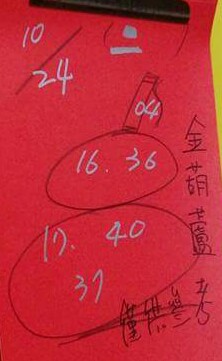 10
24
04
16. 36
17. 40
37
金葫蘆
僅供參考